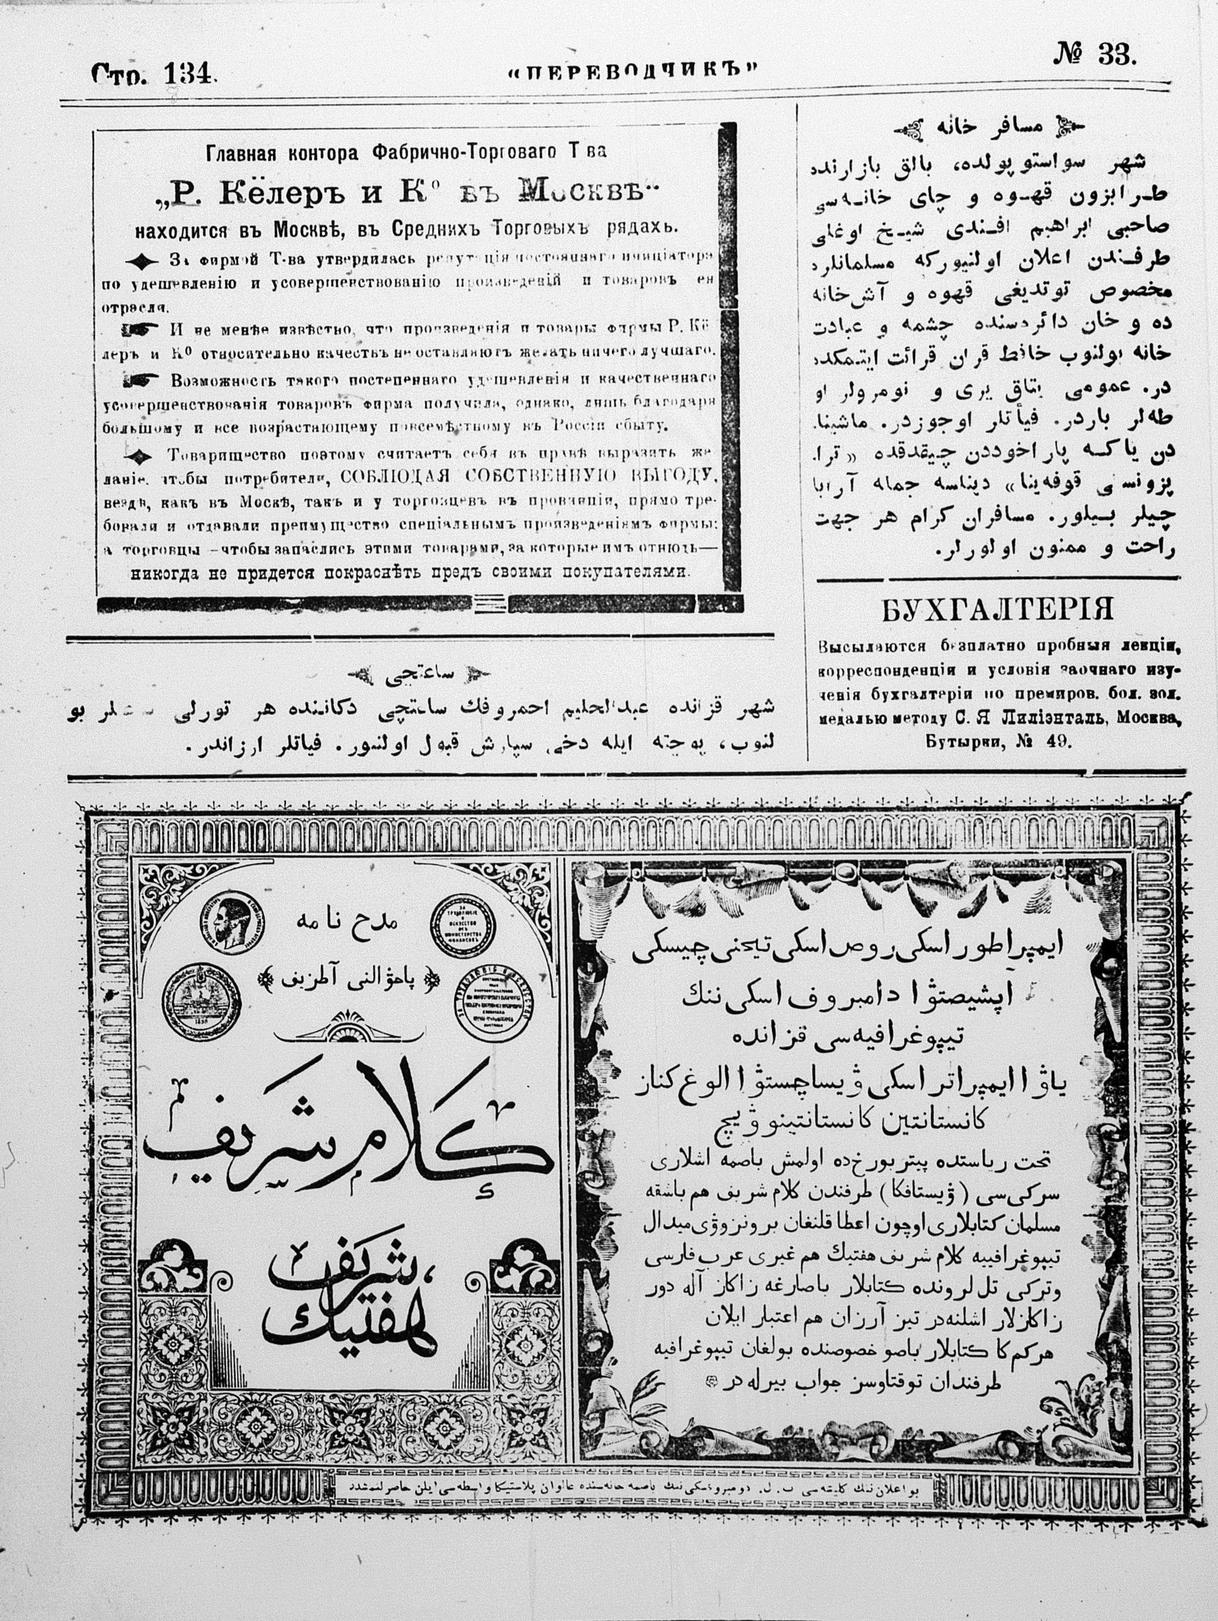 Стр. 134.
«ПЕРЕВОДЧИКЪ»
№ 33.
Главная контора Фабрично-Торговаго Т ва
„Р. Кёлеръ и Кº въ Москвѣ“
находится въ Москвѣ, въ Среднихъ Торговыхъ рядахъ.
За фирмой Т-ва утвердилась репутація постояннаго иниціатора
по удешевленію и усовершенствованію произведеній и товаровъ ея
отрасли.
И не менѣе извѣстно, что произведенія и товары фирмы Р. Кё
леръ и Кº относительно качествъ не оставляютъ желать ничего лучшаго.
Возможность такого постепеннаго удешевленія и качественнаго
усовершенствованія товаровъ фирма получила, однако, лишь благодаря
большому и все возрастающему повсемѣстному въ Россіи сбыту.
Товарищество поэтому считаетъ себя въ правѣ выразить же
ланіе, чтобы потребители, СОБЛЮДАЯ СОБСТВЕННУЮ ВЫГОДУ,
вездѣ, какъ въ Москѣ, такъ и у торговцевъ въ провинціи, прямо тре-
бовали и отдавали преимущество спеціальнымъ произведеніямъ фирмы;
а торговцы —чтобы запаслись этими товарами, за которые имъ отнюдь—
никогда не придется покраснѣть предъ своими покупателями.
ساعتچی
شهر قزانده عبدالحلیم احمروفك ساعتچی دکاننده هر تورلی بو
لنوب، بوجته ایله دخی سپارش قبول اولنور. فیاتلر ارزاندر.
مسافر خانه
شهر سواستوپولده، بالق بازارنده
طرابزون قهوه و چای خانه‌سی
صاحبی ابراهیم افندی شیخ اوغلی
طرفندن اعلان اولنیورکه مسلمانلره
مخصوص توتدیغی قهوه و آش‌خانه
ده و خان دائره‌سنده چشمه و عبادت
خانه بولنوب حافظ قران قرائت ایتمکده
در. عمومی یتاق یری و نومرولر او
طه‌لر باردر. فیأتلر اوجوزدر. ماشینا.
دن یاکه پاراخوددن چیقدقده «ترا.
پزونسکی قوفه‌ینا» دیناسه جمله آرابا
چیلر بیلور. مسافران کرام هر جهت
راحت و ممنون اولورلر.
БУХГАЛТЕРІЯ
Высылаются безплатно пробныя лекціи,
корреспонденціи и условія заочнаго изу-
ченія бухгалтеріи по премиров. бол. зол.
медалью методу С. Я Лиліэнталь, Москва,
Бутырки, № 49.
مدح نامه
پاحۋالنی آطزیف
كلام شریف
هفتیك شریف
ایمپراطور اسکی روص اسکی تیخنی چیسکی
آپشیصتۋا دامبروف اسکی ننك
تیپوغرافیه‌سی قزانده
یاۋا ایمپراتر اسکی ۋیساچستۋا الوغ کناز
کانستانتین کانستانتینوۋیچ
تحت ریاستده پیتربورخده اولمش باصمه اشلاری
سرکی‌سی (ۋیستافکا) طرفندن کلام شریف هم باشقه
مسلمان کتابلاری اوچون اعطا قلنغان برونزوۋی میدال
تیپوغرافییه کلام شریف هفتیك هم غیری عرب فارسی
وترکی تل لرونده کتابلار باصارغه زاکاز آله دور
زاکازلار اشلنه‌در تیز آرزان هم اعتبار ایلان
هرکم‌کا کتابلار باصو خصوصنده بولغان تیپوغرافیه
طرفندان توقتاوسز جواب بیرله‌در